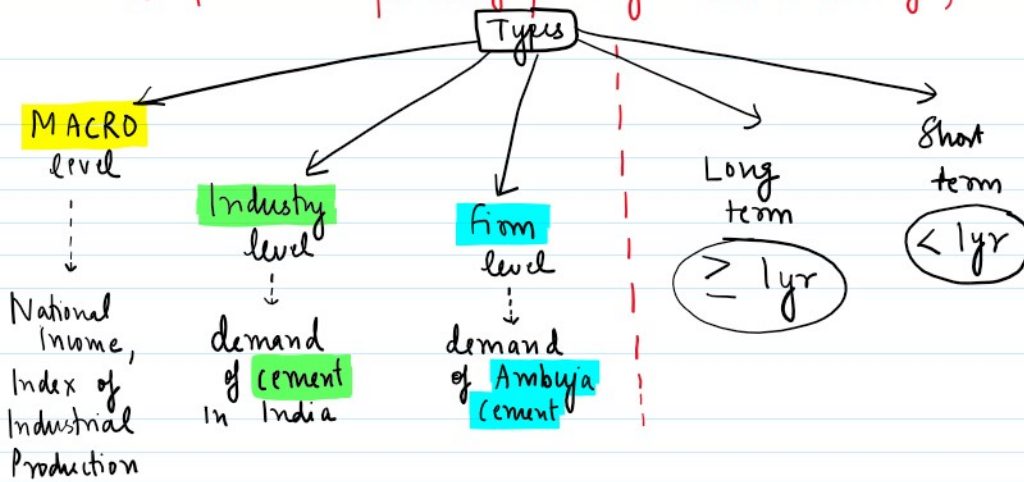 Types
MACRO
level
National
Income,
Index of
Industrial
Production
Industry
level
demand
of cement
in India
firm
level
demand
of Ambuja
cement
Long
term
≥ 1yr
Short
term
< 1yr